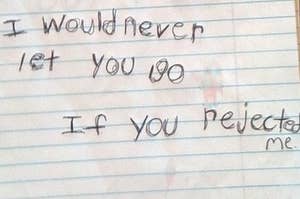 I would never
let you go
If you rejected
me.